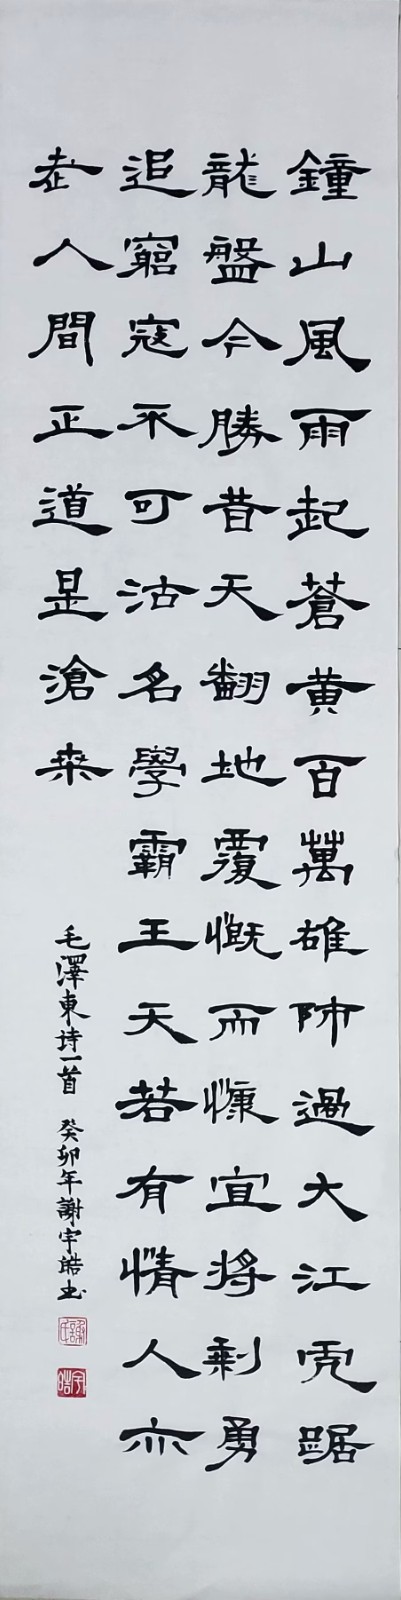 鐘山風雨起蒼黄百萬雄師過大江虎踞
龍盤今勝昔天翻地覆慨而慷宜將剩勇
追窮寇不可沽名學霸王天若有情人亦
老人間正道是滄桑
毛澤東詩一首 癸卯年謝宇皓书
謝氏
宇皓